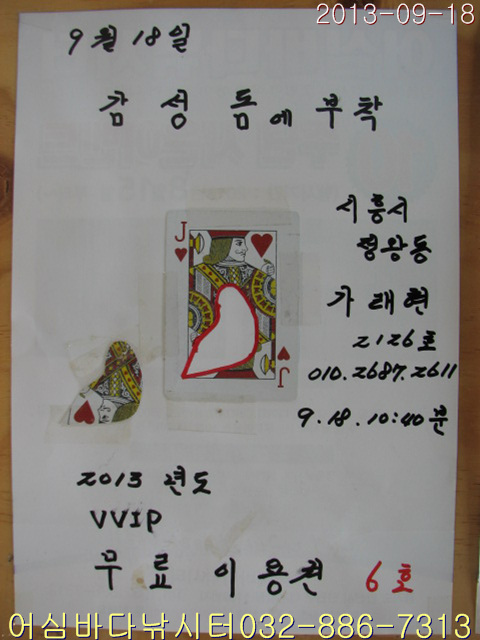 2013-09-18
9월 18일
감성돔에 부착
J
시흥시
정왕동
가래현
2126호
010.2687.2611
9.18.10:40분
J
2013 년도
VVIP
무료 이용권 6호
어심바다낚시터032-886-7313